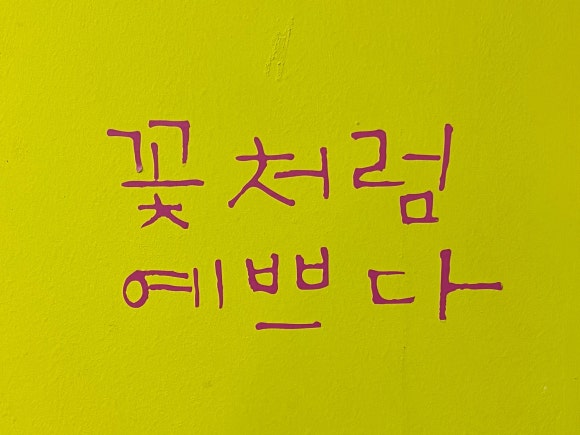 꽃처럼
예쁘다